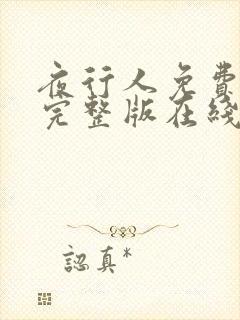 夜行人免費
完整版在綫
認真*